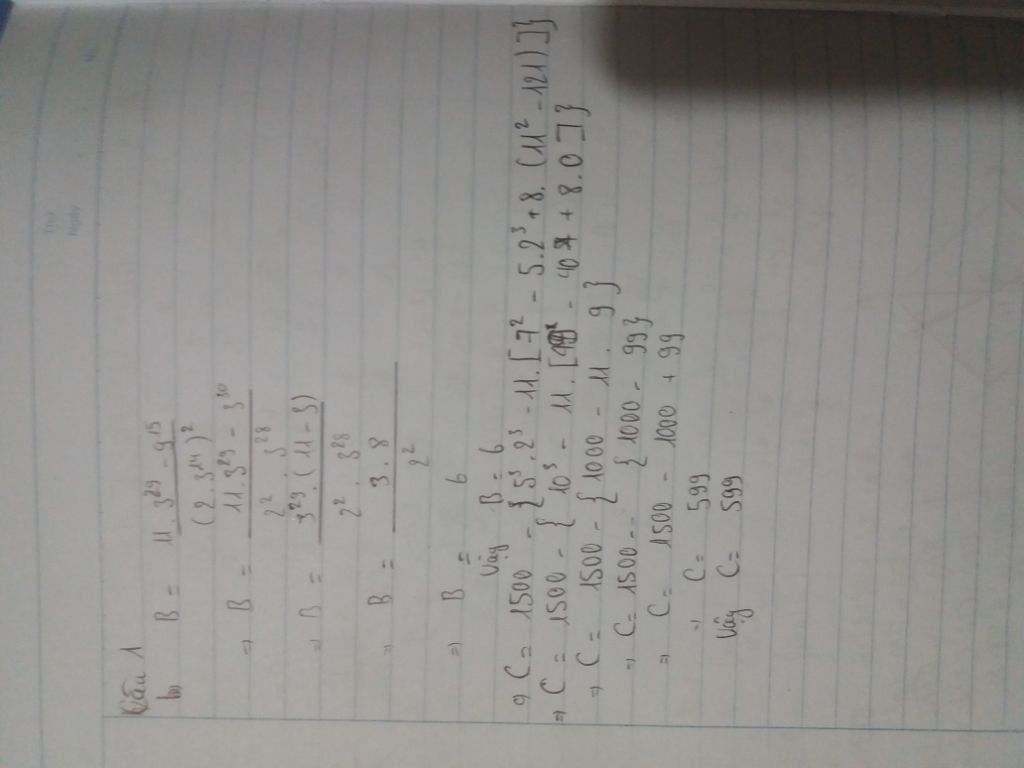 Thứ
Ngày
Câu 1
b, B = 11 . 3²⁹ - 9¹⁵ / (2 . 3¹⁴)²
=> B = 11 . 3²⁹ - 3³⁰ / 2² 3²⁸
=> B = 3²⁹ . (11 - 3) / 2² . 3²⁸
=> B = 3 . 8 / 2²
=> B = 6
Vậy B = 6
=> C = 1500 - { 5³ . 2³ - 11 . [ 7² - 5 . 2³ + 8 . (11² - 121) ] }
=> C = 1500 - { 10³ - 11 . [ - 40 + 8 . 0 ] }
=> C = 1500 - { 1000 - 11 . 9 }
=> C = 1500 - { 1000 - 99 }
=> C = 1500 - 1000 + 99
=> C = 599
Vậy C = 599